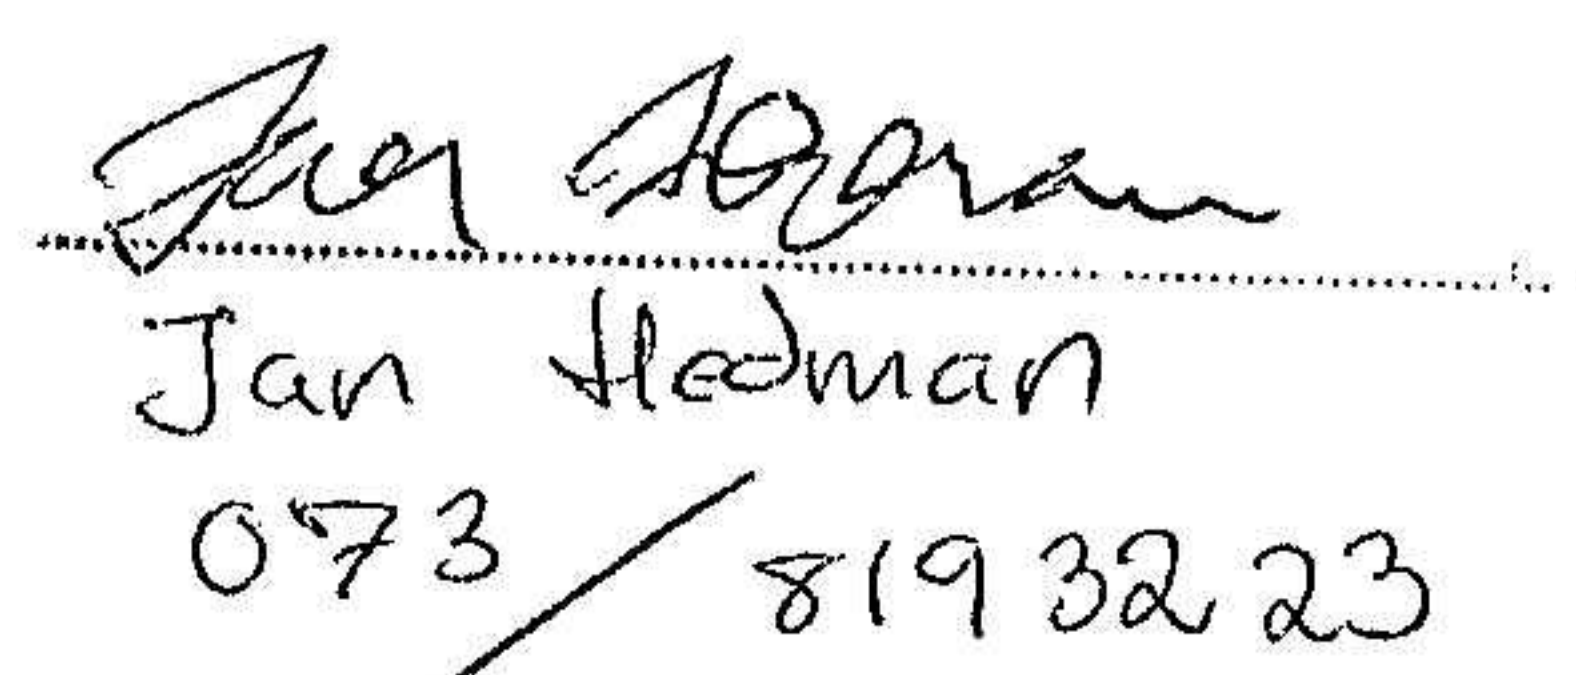 Jan Hedman
Jan Hedman
073/819 32 23